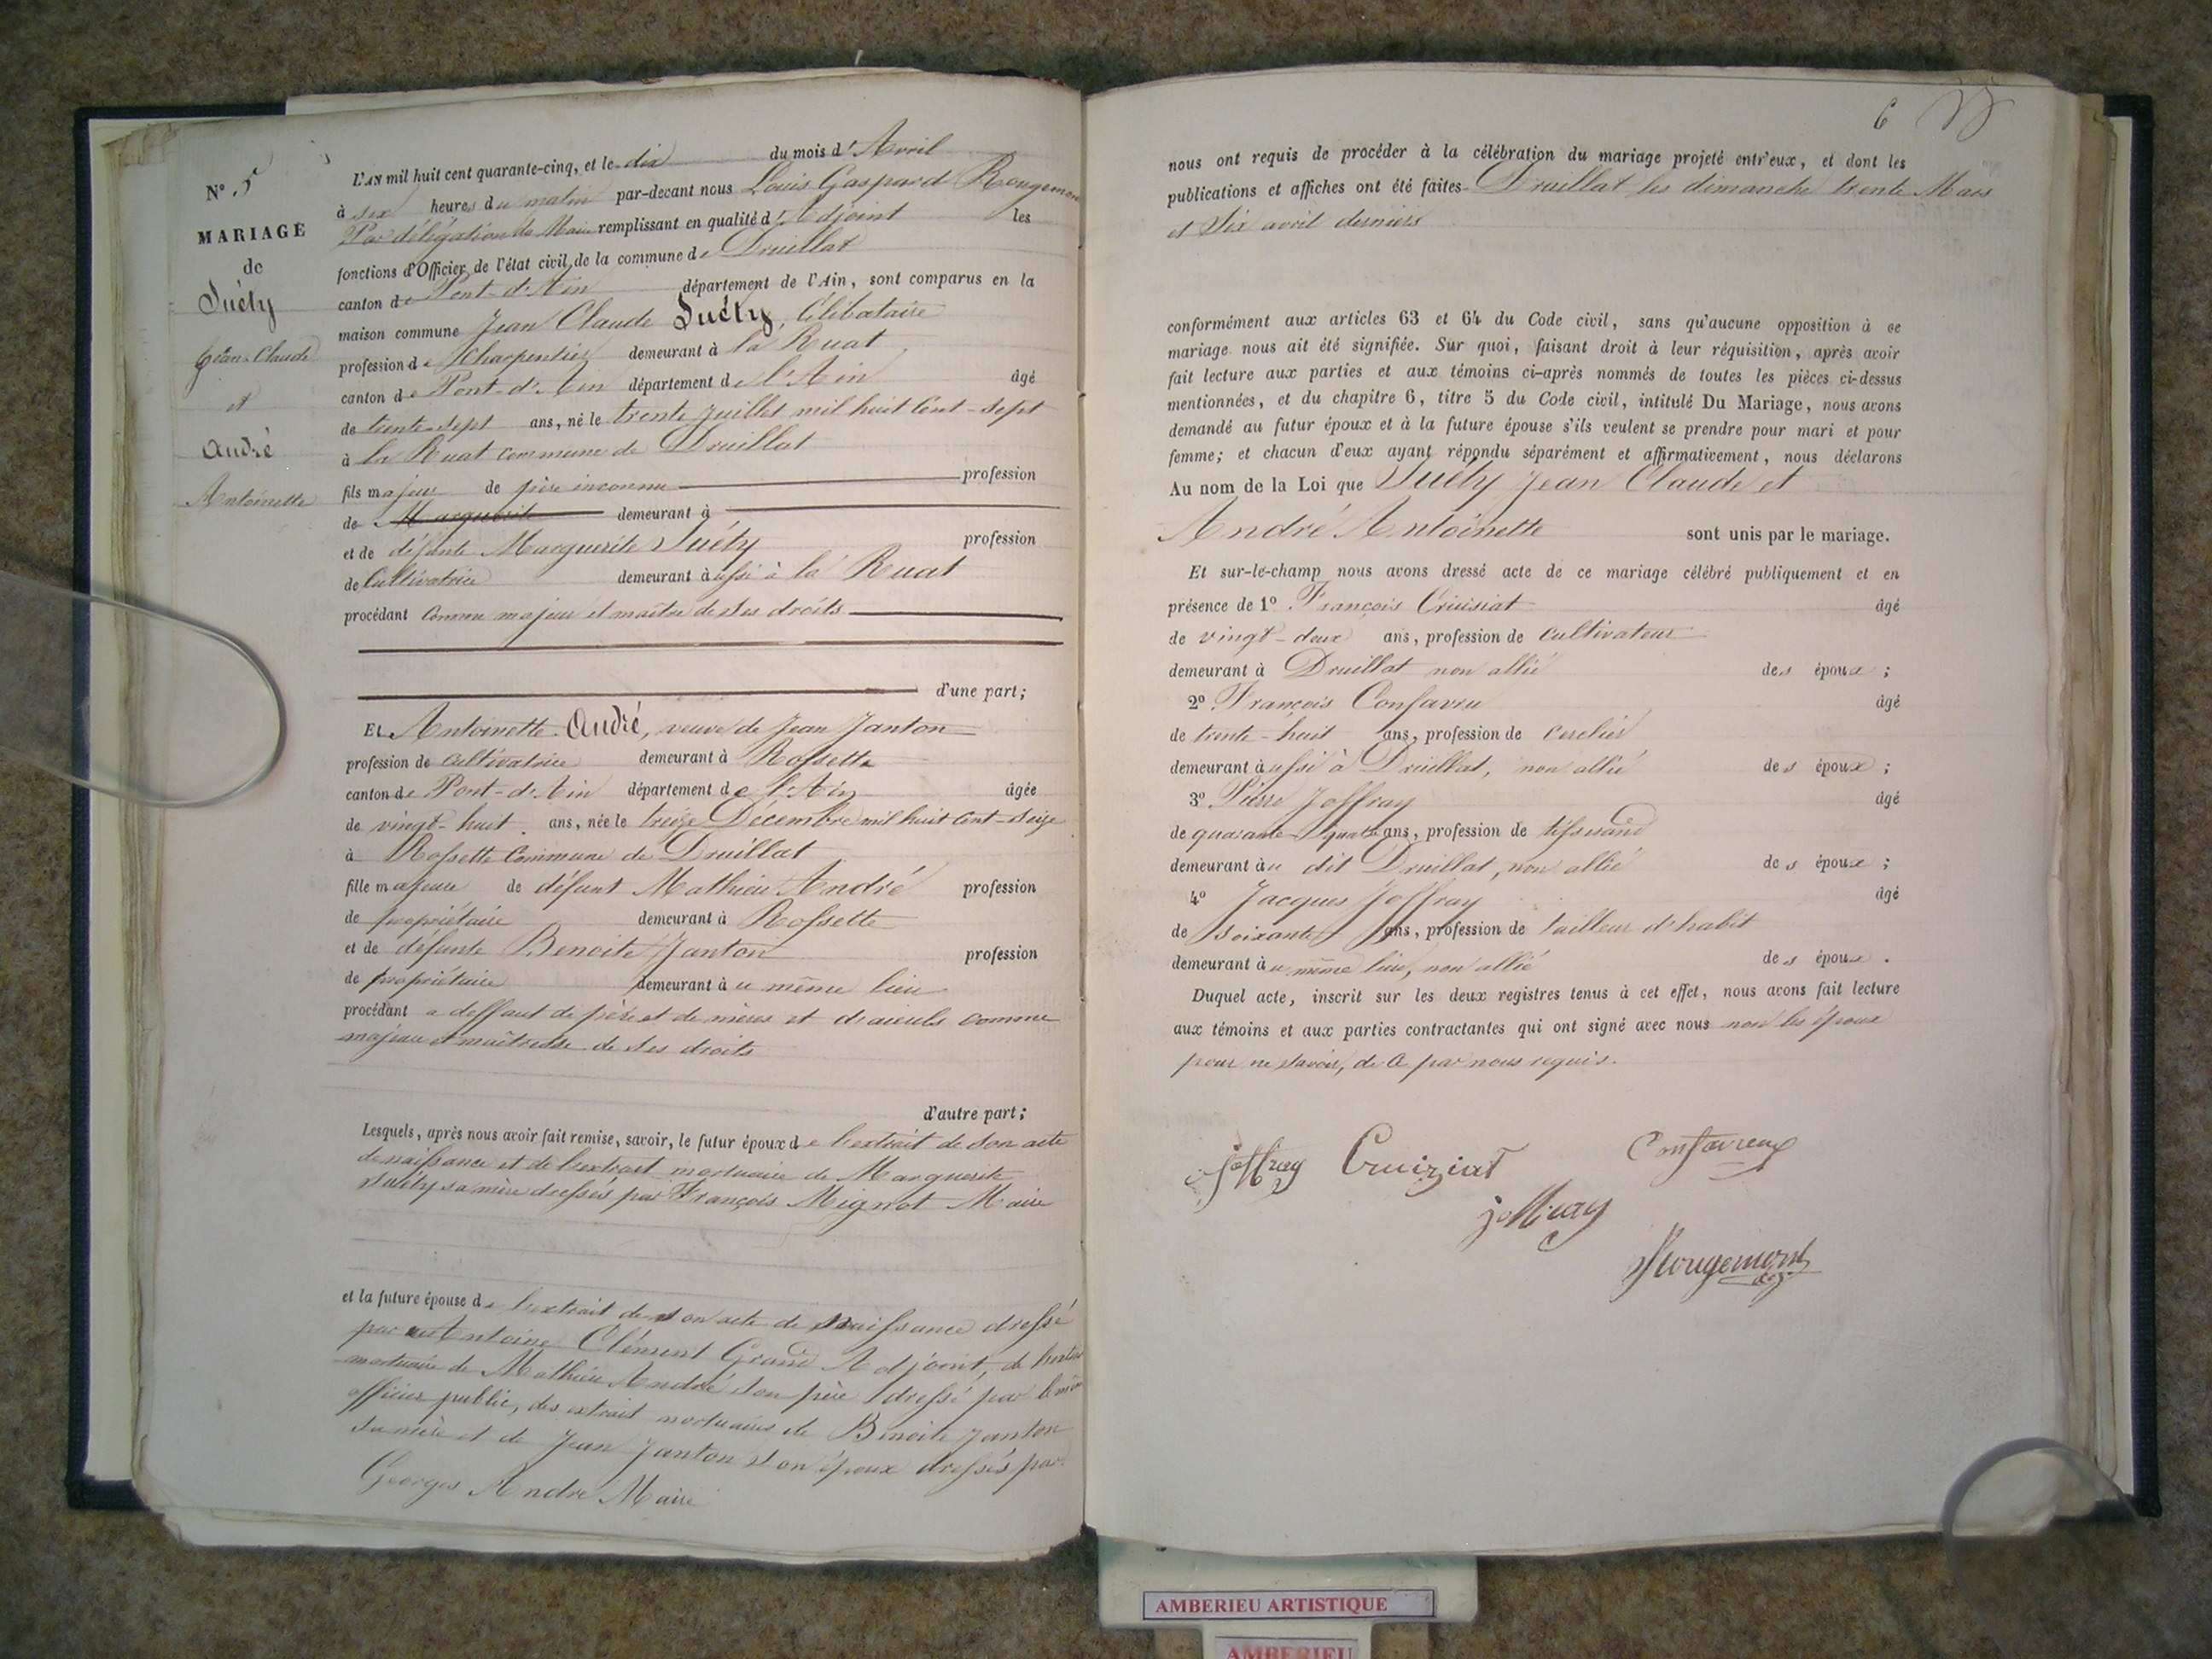 N° 5
MARIAGE
de
Suély
Jean-Claude
et
André
Antoinette
L'AN mil huit cent quarante-cinq, et le dix du mois d'Avril
à six heures du matin par-devant nous Louis Gaspard Rougemont
Par délégation du Maire remplissant en qualité d'Adjoint les
fonctions d'Officier de l'état civil de la commune de Druillat
canton de Pont-d'Ain département de l'Ain, sont comparus en la
maison commune Jean Claude Suély, Célibataire
profession de Charpentier demeurant à la Ruat
canton de Pont-d'Ain département de l'Ain âgé
de trente-sept ans, né le trente juillet mil huit Cent-Sept
à la Ruat commune de Druillat
fils majeur de père inconnu profession
de Marguerite demeurant à
et de défunte Marguerite Suély profession
de Cultivatrice demeurant aussi à la Ruat
procédant comme majeur et maître de ses droits
d'une part;
Et Antoinette André, veuve de Jean Janton
profession de cultivatrice demeurant à Rossette
canton de Pont-d'Ain département de l'Ain âgée
de vingt-huit ans, née le treize Décembre mil huit Cent-Seize
à Rossette Commune de Druillat
fille majeure de défunt Mathieu André profession
de propriétaire demeurant à Rossette
et de défunte Benoite Janton profession
de propriétaire demeurant au même lieu
procédant a deffaut de père et de mères et d'aieuls comme
majeur et maîtresse de ses droits
d'autre part;
Lesquels, après nous avoir fait remise, savoir, le futur époux de l'extrait de son acte
de naissance et de l'extrait mortuaire de Marguerite
Suély sa mère dressés par François Mignot Maire
et la future épouse de l'extrait de son acte de naissance dressé
par Antoine Clément Grand Adjoint, de l'extrait
mortuaire de Mathieu André son père dressé par le même
officier public, des extrait mortuaires de Benoite Janton
sa mère et de Jean Janton son époux dressés par
Georges André Maire
6
nous ont requis de procéder à la célébration du mariage projeté entr'eux, et dont les
publications et affiches ont été faites Druillat les dimanche trente Mars
et Six avril derniers
conformément aux articles 63 et 64 du Code civil, sans qu'aucune opposition à ce
mariage nous ait été signifiée. Sur quoi, faisant droit à leur réquisition, après avoir
fait lecture aux parties et aux témoins ci-après nommés de toutes les pièces ci-dessus
mentionnées, et du chapitre 6, titre 5 du Code civil, intitulé Du Mariage, nous avons
demandé au futur époux et à la future épouse s'ils veulent se prendre pour mari et pour
femme; et chacun d'eux ayant répondu séparément et affirmativement, nous déclarons
Au nom de la Loi que Suély Jean Claude et
André Antoinette sont unis par le mariage.
Et sur-le-champ nous avons dressé acte de ce mariage célébré publiquement et en
présence de 1° François Cruisiat âgé
de vingt-deux ans, profession de cultivateur
demeurant à Druillat non allié des époux ;
2° François Confavru âgé
de trente-huit ans, profession de cerclier
demeurant aussi à Druillat, non allié des époux ;
3° Pierre Joffray âgé
de quarante-quatre ans, profession de tisserand
demeurant au dit Druillat, non allié des époux ;
4° Jacques Joffray âgé
de soixante ans, profession de tailleur d'habit
demeurant au même lieu, non allié des époux .
Duquel acte, inscrit sur les deux registres tenus à cet effet, nous avons fait lecture
aux témoins et aux parties contractantes qui ont signé avec nous non les époux
pour ne savoir, de ce par nous requis.
joffray Cruiziat Confavreux
joffray
Rougemont
adj.
AMBERIEU ARTISTIQUE
AMBERIEU